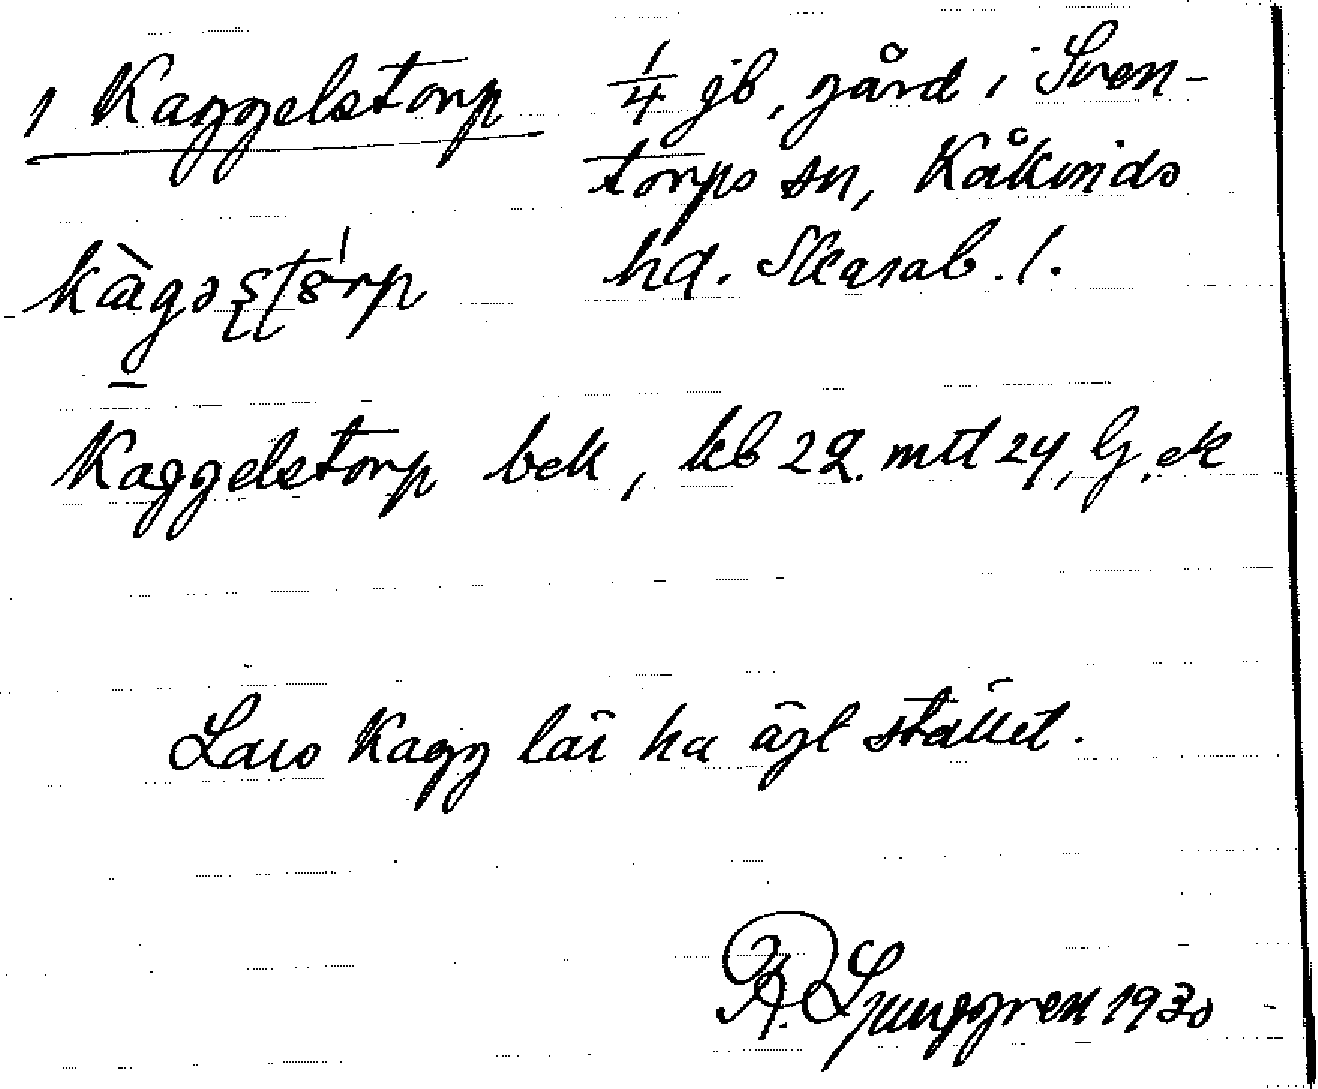 1 Kaggelstorp 1/4 jb, gård i Sven-
torps sn, Kåkinds
hd. Skarab. l.
Kaggelstorp bek, kb 22 mtl 24, G. ek
Lars Kagg lär ha ägt stället.
R. Ljunggren 1930